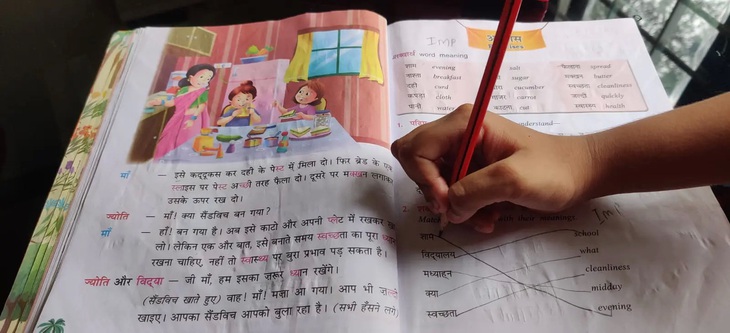 माँ — इसे कद्दूकस कर दही के पेस्ट में मिला दो। फिर ब्रेड के एक
स्लाइस पर पेस्ट अच्छी तरह फैला दो। दूसरे पर मक्खन लगाकर
उसके ऊपर रख दो।
ज्योति — माँ! क्या सैंडविच बन गया?
माँ — हाँ! बन गया है। अब इसे काटो और अपनी प्लेट में रखकर
लो। लेकिन एक और बात, इसे बनाते समय स्वच्छता का पूरा
रखना चाहिए, नहीं तो स्वास्थ्य पर बुरा प्रभाव पड़ सकता है।
ज्योति और विद्या — जी माँ, हम इसका ज़रूर ध्यान रखेंगे।
(सैंडविच खाते हुए) वाह! माँ! मज़ा आ गया। आप भी
खाइए। आपका सैंडविच आपको बुला रहा है। (सभी हँसने लगे)
IMP
word meaning
शाम evening salt फैलाना spread
नाश्ता breakfast sugar मक्खन butter
दही curd cucumber स्वच्छता cleanliness
कपड़ा cloth गाजर carrot जल्दी quickly
पानी water काटना cut स्वास्थ्य health
1.
understand—
2.
Match with their meanings
Imp
शाम school
विद्यालय what
मध्याहन cleanliness
क्या midday
स्वच्छता evening